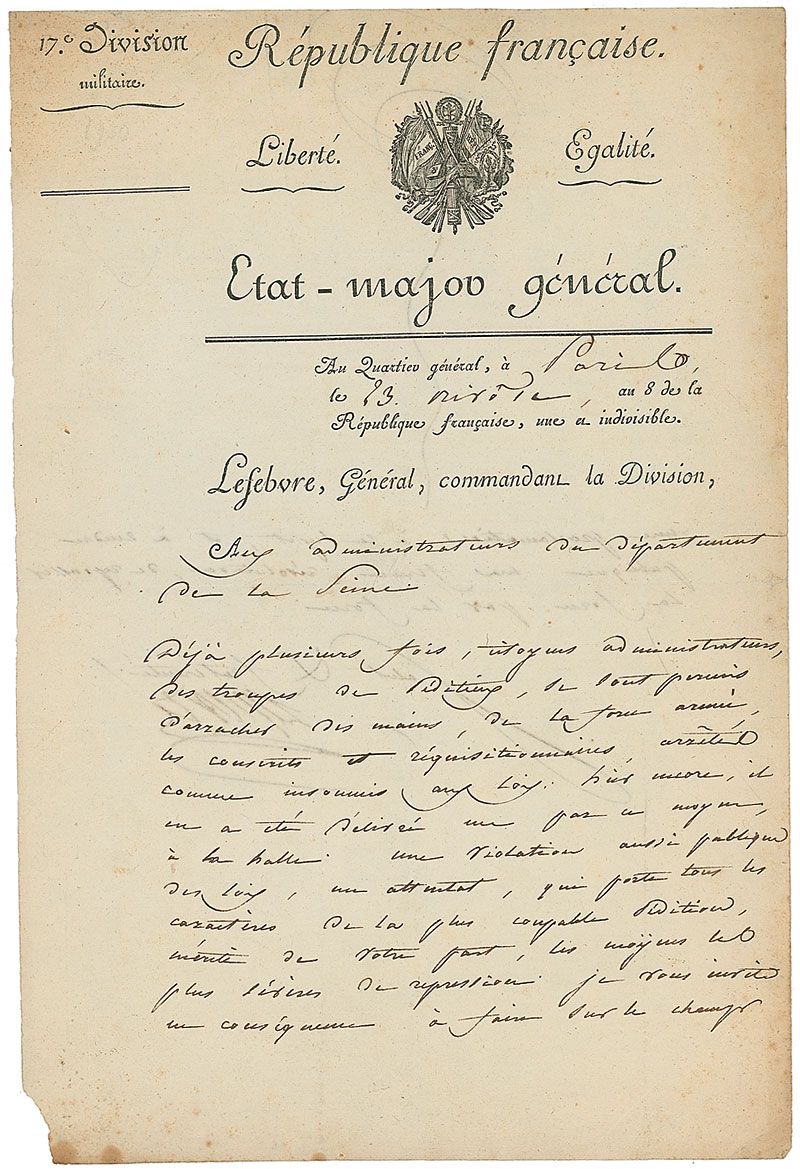 17.e Division
militaire.
République française.
Liberté.
Egalité.
FRANÇ
Etat-major général.
Au Quartier général, à Paris,
le 23. nivôse, an 8 de la
République française, une et indivisible.
Lefebvre, Général, commandant la Division,
Aux administrateurs du département
de la Seine
Déjà plusieurs fois, citoyens administrateurs,
des troupes de séditieux, se sont permis
d'arracher des mains, de la force armée,
les conscrits et réquisitionnaires, arrêtés
comme insoumis aux loix. hier encore, il
en a été délivré un par ce moyen,
à la halle. une violation aussi publique
des loix, un attentat, qui porte tous les
caractères de la plus coupable sédition,
mérite de votre part, les moÿens les
plus sévères de repression. je vous invite
en conséquence à faire sur le champ